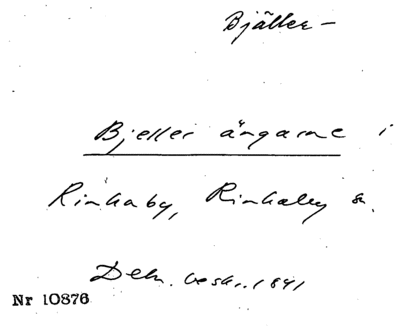 Bjäller-
Bjeller ängarne i
Rinkaby, Rinkaby sn.
Deln. beskr. 1841
Nr 10876